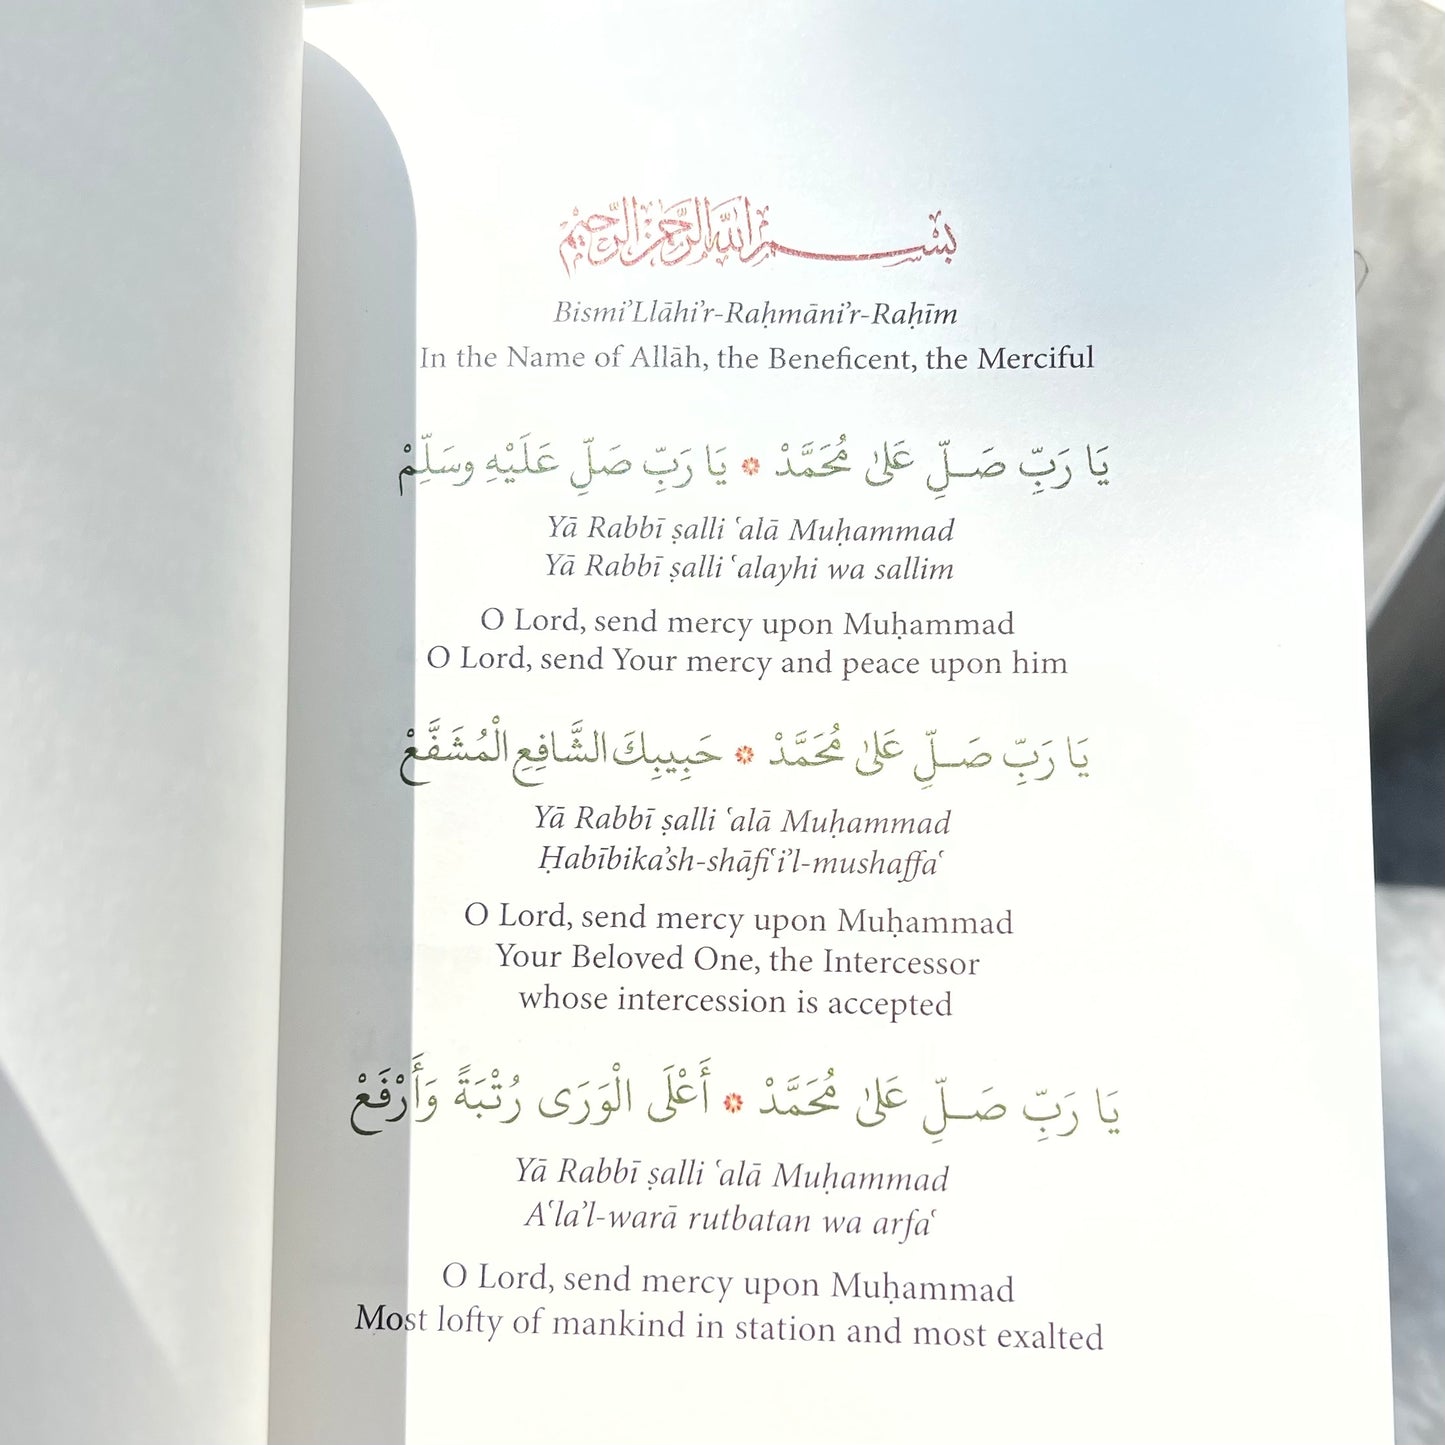 بِسْمِ اللهِ الرَّحْمٰنِ الرَّحِيْمِ
Bismi’Llāhi’r-Raḥmāni’r-Raḥīm
In the Name of Allāh, the Beneficent, the Merciful
يَا رَبِّ صَـلِّ عَلىٰ مُحَمَّدْ ❁ يَا رَبِّ صَلِّ عَلَيْهِ وسَلِّمْ
Yā Rabbī ṣalli ʿalā Muḥammad
Yā Rabbī ṣalli ʿalayhi wa sallim
O Lord, send mercy upon Muḥammad
O Lord, send Your mercy and peace upon him
يَا رَبِّ صَـلِّ عَلىٰ مُحَمَّدْ ❁ حَبِيبِكَ الشَّافِعِ الْمُشَفَّعْ
Yā Rabbī ṣalli ʿalā Muḥammad
Ḥabībika’sh-shāfiʿi’l-mushaffaʿ
O Lord, send mercy upon Muḥammad
Your Beloved One, the Intercessor
whose intercession is accepted
يَا رَبِّ صَـلِّ عَلىٰ مُحَمَّدْ ❁ أَعْلَى الْوَرَى رُتْبَةً وَأَرْفَعْ
Yā Rabbī ṣalli ʿalā Muḥammad
Aʿla’l-warā rutbatan wa arfaʿ
O Lord, send mercy upon Muḥammad
Most lofty of mankind in station and most exalted